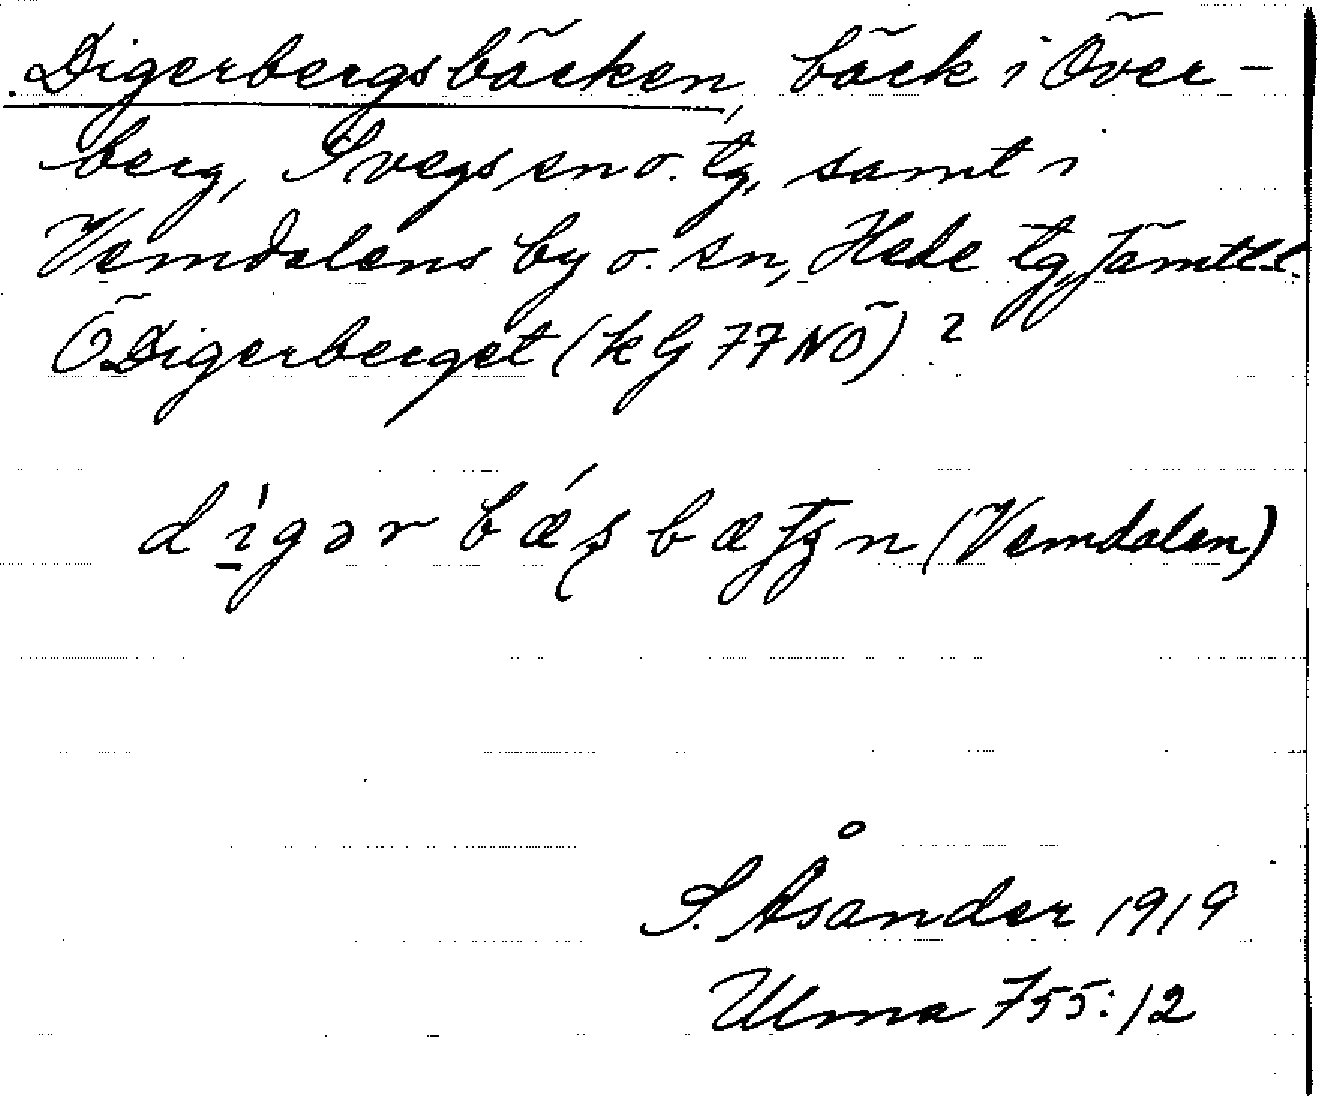 Digerbergsbäcken, bäck i Över-
berg, Svegs sn o. tg, samt i
Vemdalens by o. sn, Hede tg, Jämtl.l.
Ö. Digerberget (kG 77 NÖ) ?
(Vemdalen)
S. Åsander 1919
Ulma 755:12